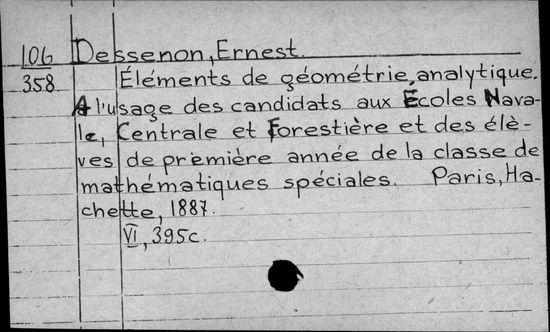 106 Dessenon, Ernest.
358 Éléments de géométrie analytique.
A l'usage des candidats aux Écoles Nava-
le, Centrale et Forestière et des élè-
ves de première année de la classe de
mathématiques spéciales. Paris, Ha-
chette, 1887.
VI, 395c.